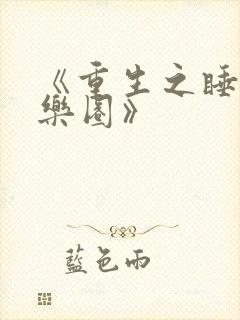 《重生之睡
樂園》
藍色雨